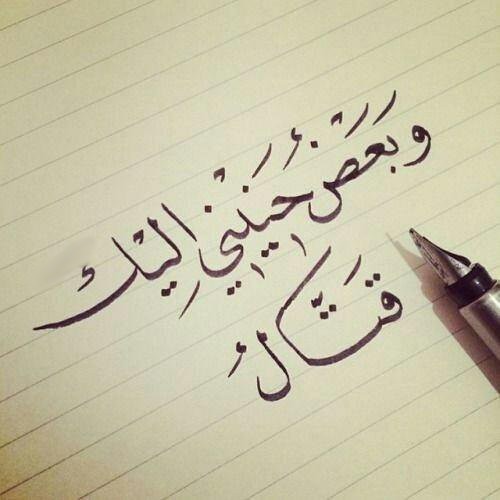 وبَعَضُ حَنِيْنِي اليْك
قَتّالُ